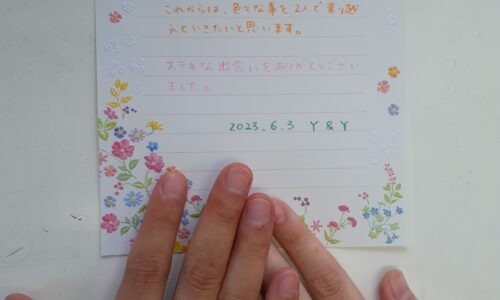 これからは、色々な事を2人で乗り越
えていきたいと思います。
ステキな出会いをありがとうござい
ました。
2023.6.3 Y & Y